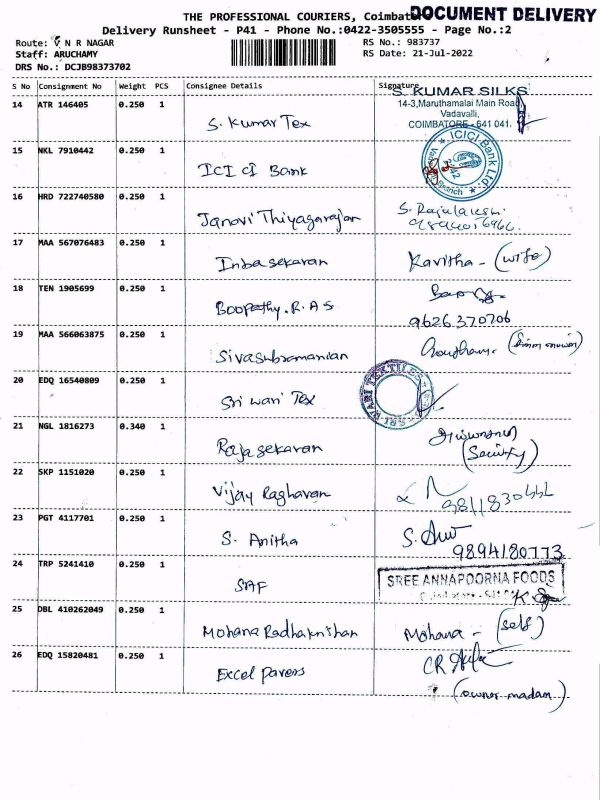 THE PROFESSIONAL COURIERS, Coimbato
DOCUMENT DELIVERY
Delivery Runsheet - P41 - Phone No.:0422-3505555 - Page No.:2
Route: V N R NAGAR
RS No.: 983737
Staff: ARUCHAMY
RS Date: 21-Jul-2022
DRS No.: DCJB98373702
S No Consignment No Weight PCS Consignee Details Signature
14 ATR 146405 0.250 1
S. Kumar Tex
S. KUMAR SILKS
14-3,Maruthamalai Main Road
Vadavalli,
COIMBATORE - 641 041.
15 NKL 7910442 0.250 1
ICICI Bank
ICICI Bank Ltd.
Branch
16 HRD 722740580 0.250 1
Janavi Thiyagarajan
S. Rajalakshmi
17 MAA 567076483 0.250 1
Inbasekaran
Kavitha - (wife)
18 TEN 1905699 0.250 1
Boopathy.R.A.S
9626370706
19 MAA 566063875 0.250 1
Sivasubramanian
20 EDQ 16540809 0.250 1
Sri wari Tex
SRI WARI TEXTILES
21 NGL 1816273 0.340 1
Rajasekaran
(Security)
22 SKP 1151020 0.250 1
Vijay Raghavan
23 PGT 4117701 0.250 1
S. Anitha
9894180773
24 TRP 5241410 0.250 1
SAF
SREE ANNAPOORNA FOODS
25 DBL 410262049 0.250 1
Mohana Radhakrishan
Mohana - (self)
26 EDQ 15820481 0.250 1
Excel pavers
CR
(owner madam)